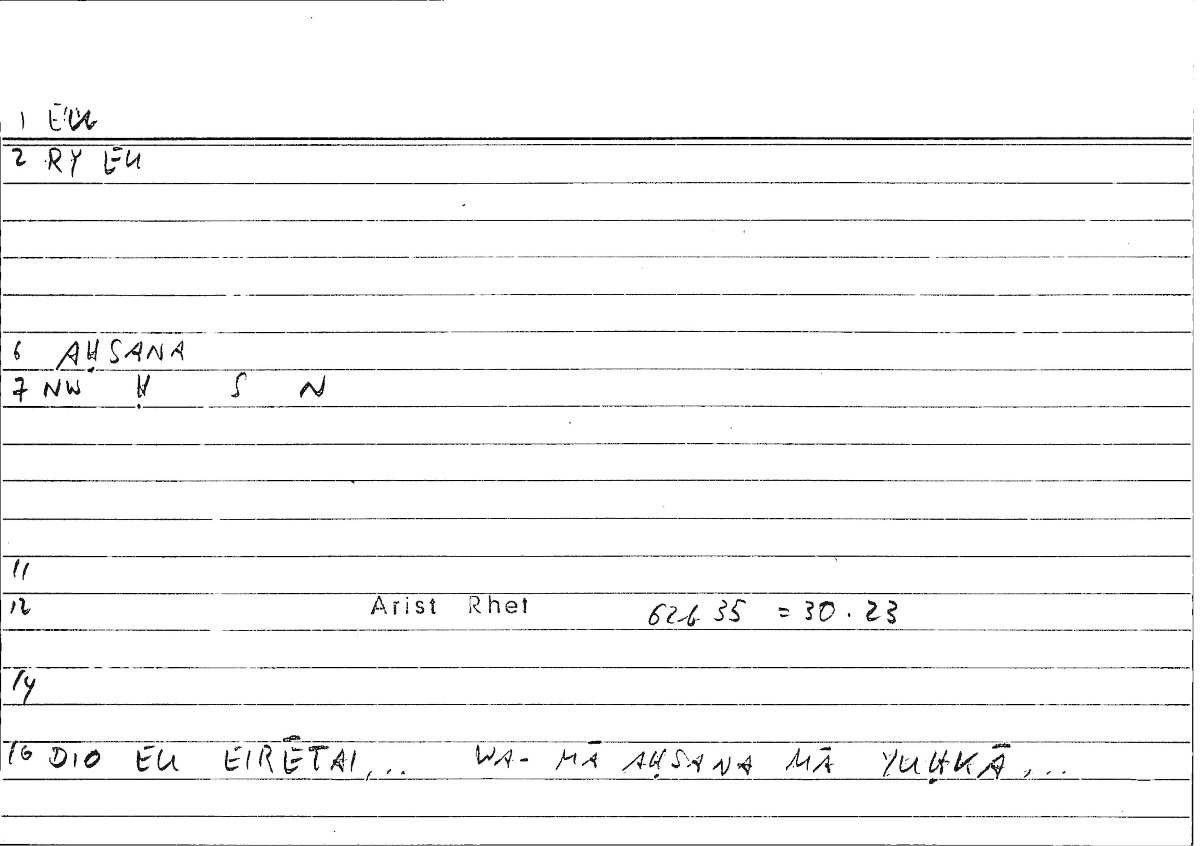 1 EU
2 RY EU
6 AḤSANA
7 NW Ḥ S N
11
12 Arist Rhet 62b35 = 30.23
14
16 DIO EU EIRĒTAI,... WA-MĀ AḤSANA MĀ YUḤKĀ,...